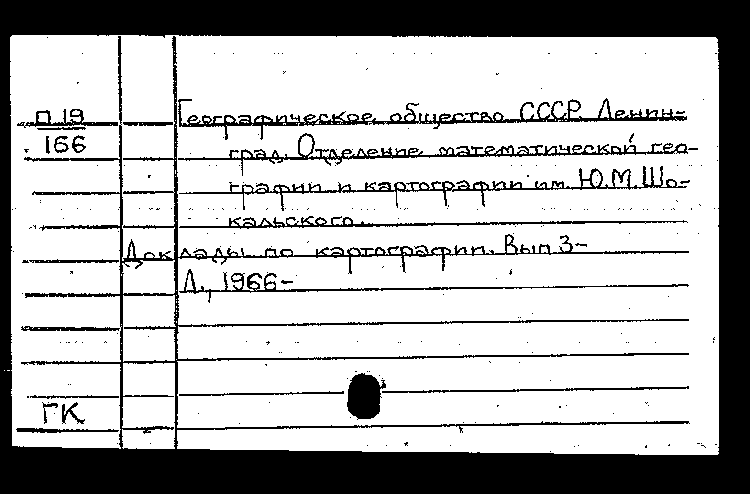 П 19
166
Географическое общество СССР. Ленин-
град. Отделение математической гео-
графии и картографии им. Ю.М.Шо-
кальского.
Доклады по картографии. Вып 3-
Л., 1966-
ГК